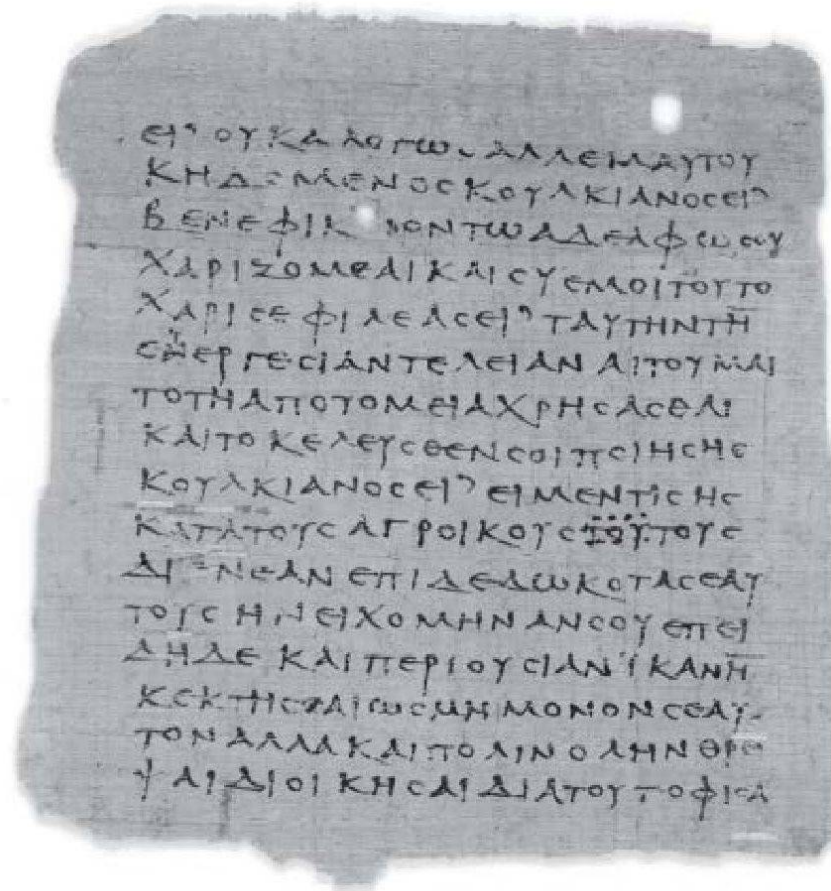 ΕΙ⁾ ΟΥΚΑΛΟΓΩϹ ΑΛΛΕΜΑΥΤΟΥ
ΚΗΔΟΜΕΝΟϹ ΚΟΥΛΚΙΑΝΟϹ ΕΙ⁾
ΒΕΝΕΦΙΚΙΟΝ ΤΩ ΑΔΕΛΦΩ ϹΟΥ
ΧΑΡΙΖΟΜΕΑΙ ΚΑΙ ϹΥ ΕΜΟΙ ΤΟΥΤΟ
ΧΑΡΙϹΕ ΦΙΛΕΑϹ ΕΙ⁾ ΤΑΥΤΗΝ ΤΗ̅
ΤΕΛΕΙΑΝ ΑΙΤΟΥΜΑΙ
ΤΟ ΤΗ ΑΠΟΤΟΜΕΙΑ ΧΡΗϹΑϹΘΑΙ
ΚΑΙ ΤΟ ΚΕΛΕΥϹΘΕΝ ϹΟΙ ΠΟΙΗϹΗϹ
ΚΟΥΛΚΙΑΝΟϹ ΕΙ⁾ ΕΙ ΜΕΝ ΤΙϹ ΗϹ
ΚΑΤΑ ΤΟΥϹ ΑΓΡΟΙΚΟΥϹ ΤΟΥΤΟΥϹ
ΔΙ ΕΝΕΑΝ ΕΠΙΔΕΔΩΚΟΤΑϹ ΕΑΥ
ΤΟΥϹ ΗΝΕΙΧΟΜΗΝ ΑΝ ϹΟΥ ΕΠΕΙ
ΔΗ ΔΕ ΚΑΙ ΠΕΡΙΟΥϹΙΑΝ ΪΚΑΝΗ̅
ΚΕΚΤΗϹΑΙ ΩϹ ΜΗ ΜΟΝΟΝ ϹΕΑΥ
ΤΟΝ ΑΛΛΑ ΚΑΙ ΠΟΛΙΝ ΟΛΗΝ ΘΡΕ
ΨΑΙ ΔΙΟΙΚΗϹΑΙ ΔΙΑ ΤΟΥΤΟ ΦΙϹΑ